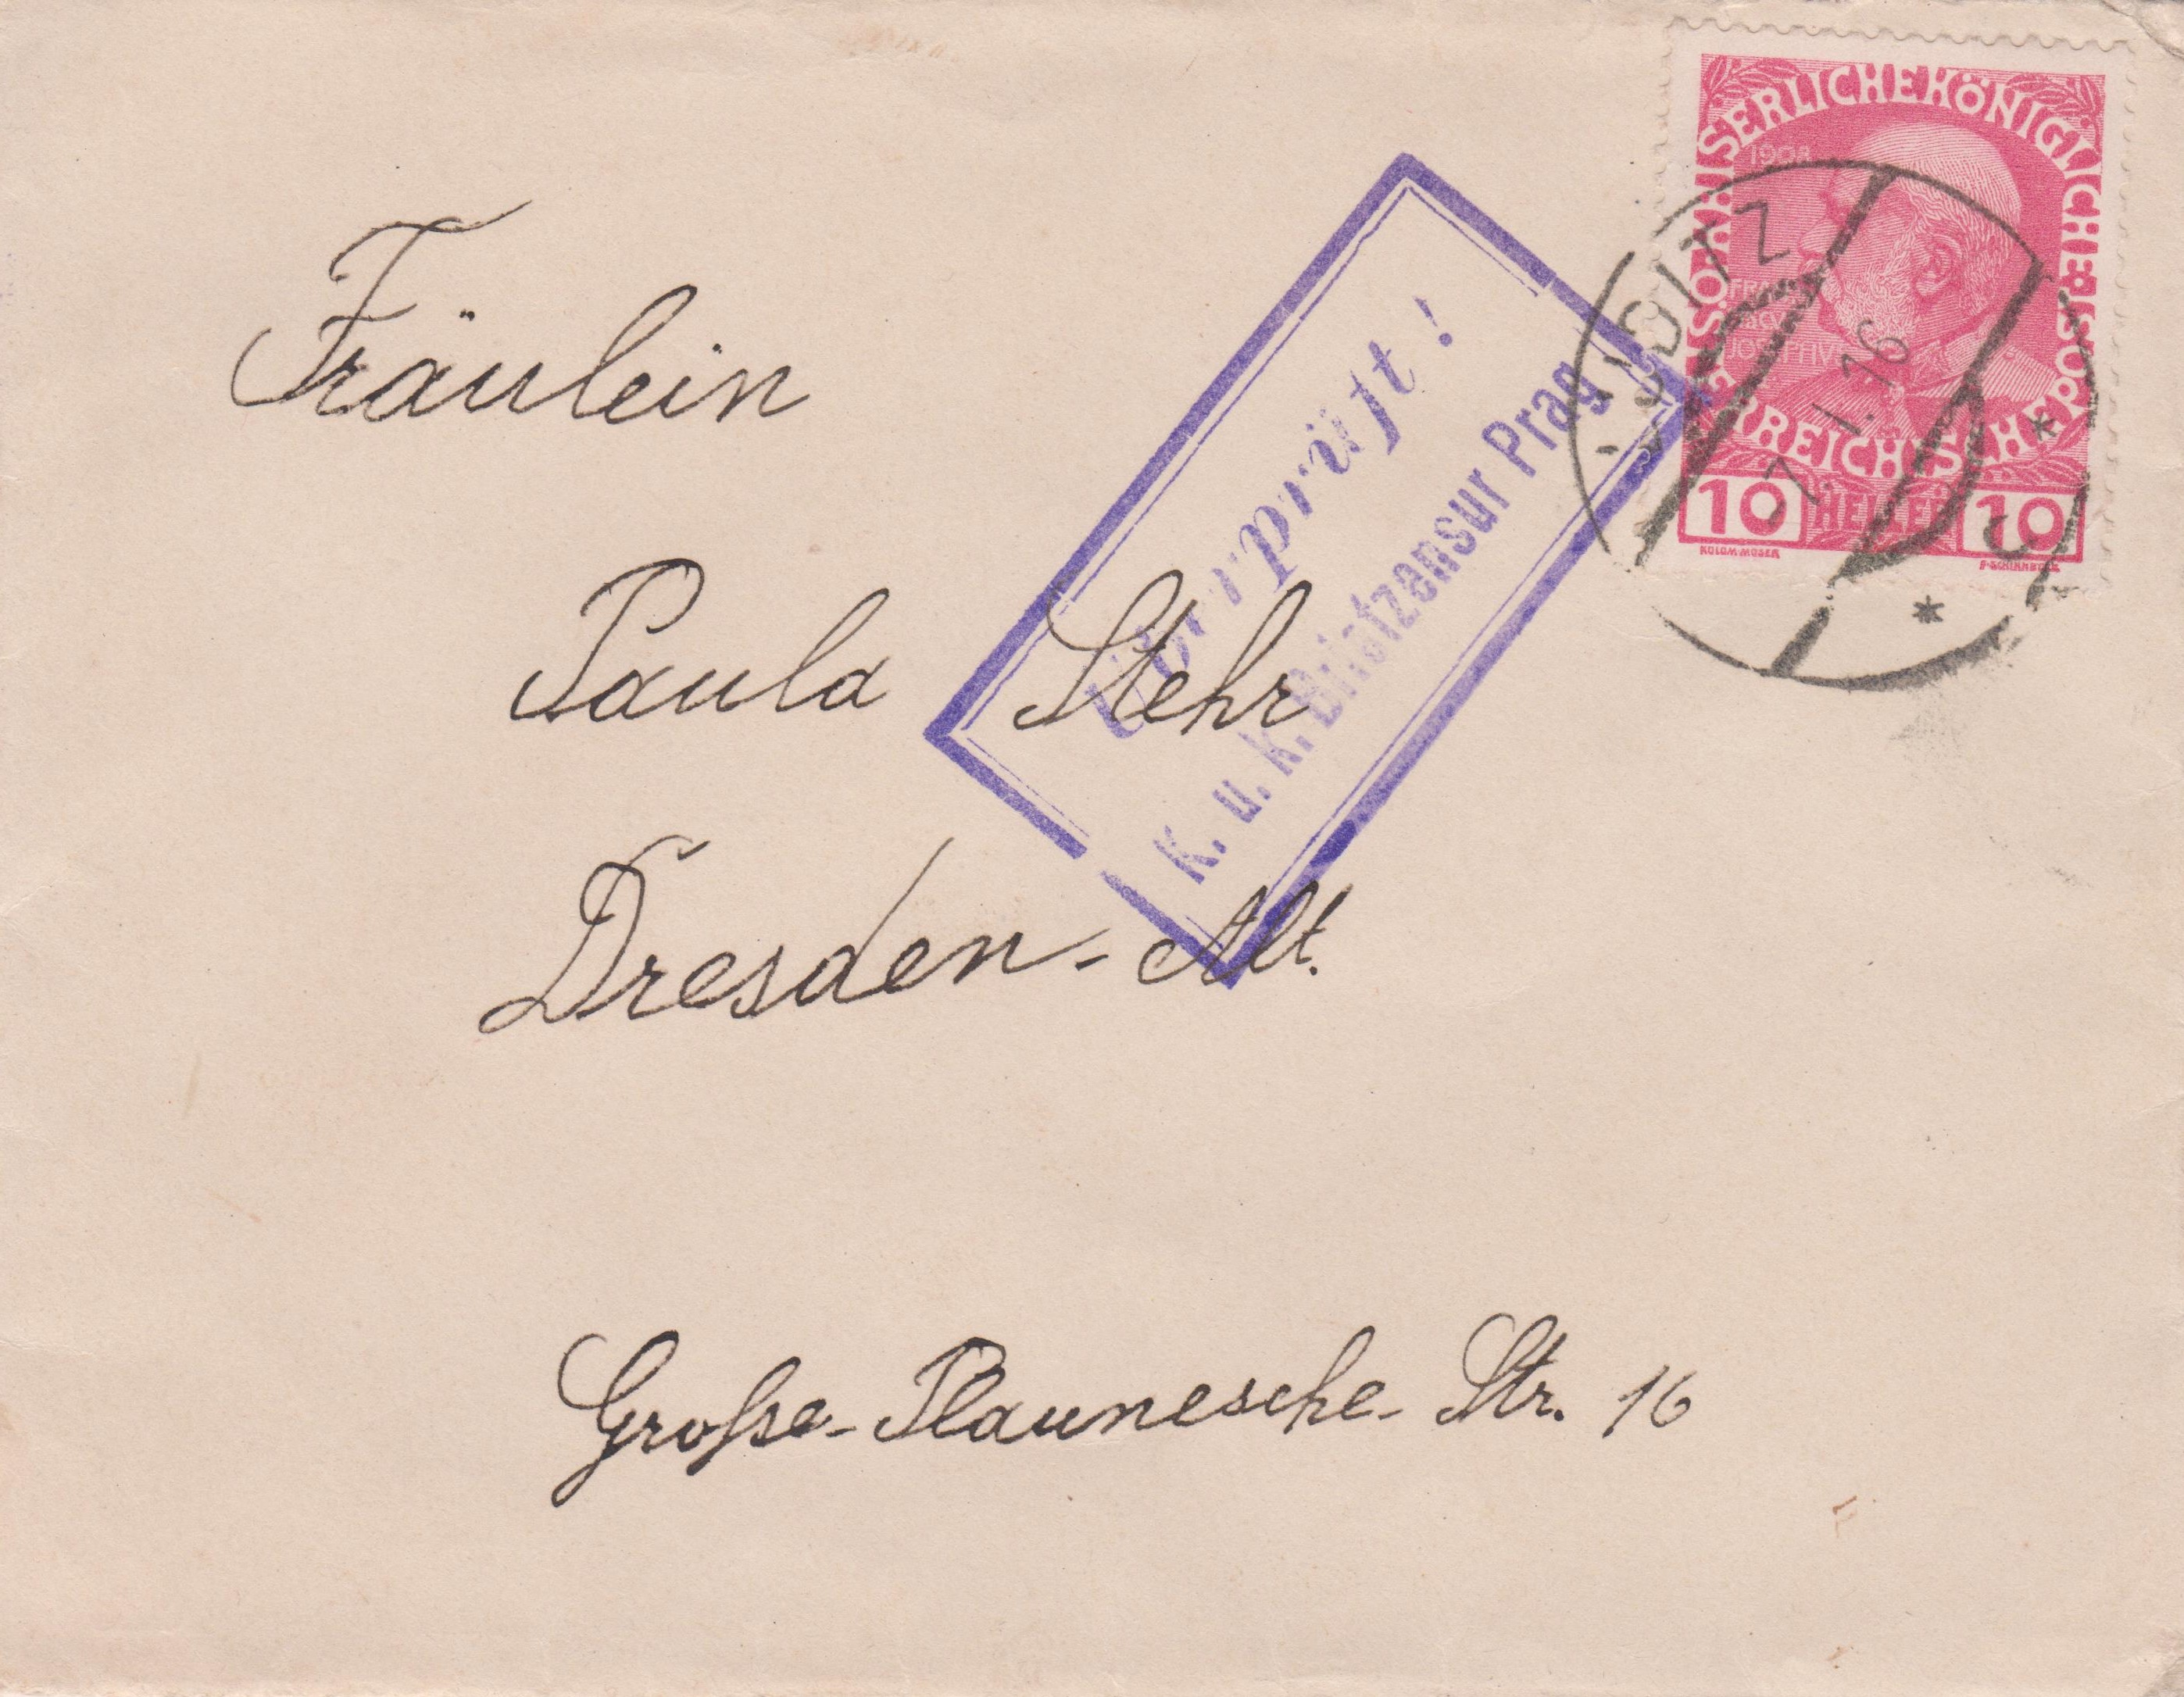 Fräulein
Paula Stehr
Dresden-Alt.
Große-Plaunesche-Str. 16
Überprüft!
K. u. K. Briefzensur Prag
KAISERLICHE KÖNIGLICHE
ÖSTERREICHISCHE POST
1908
10 HELLER 10
KOLOM. MOSER
F. SCHIRNBÖCK
7. 1. 16